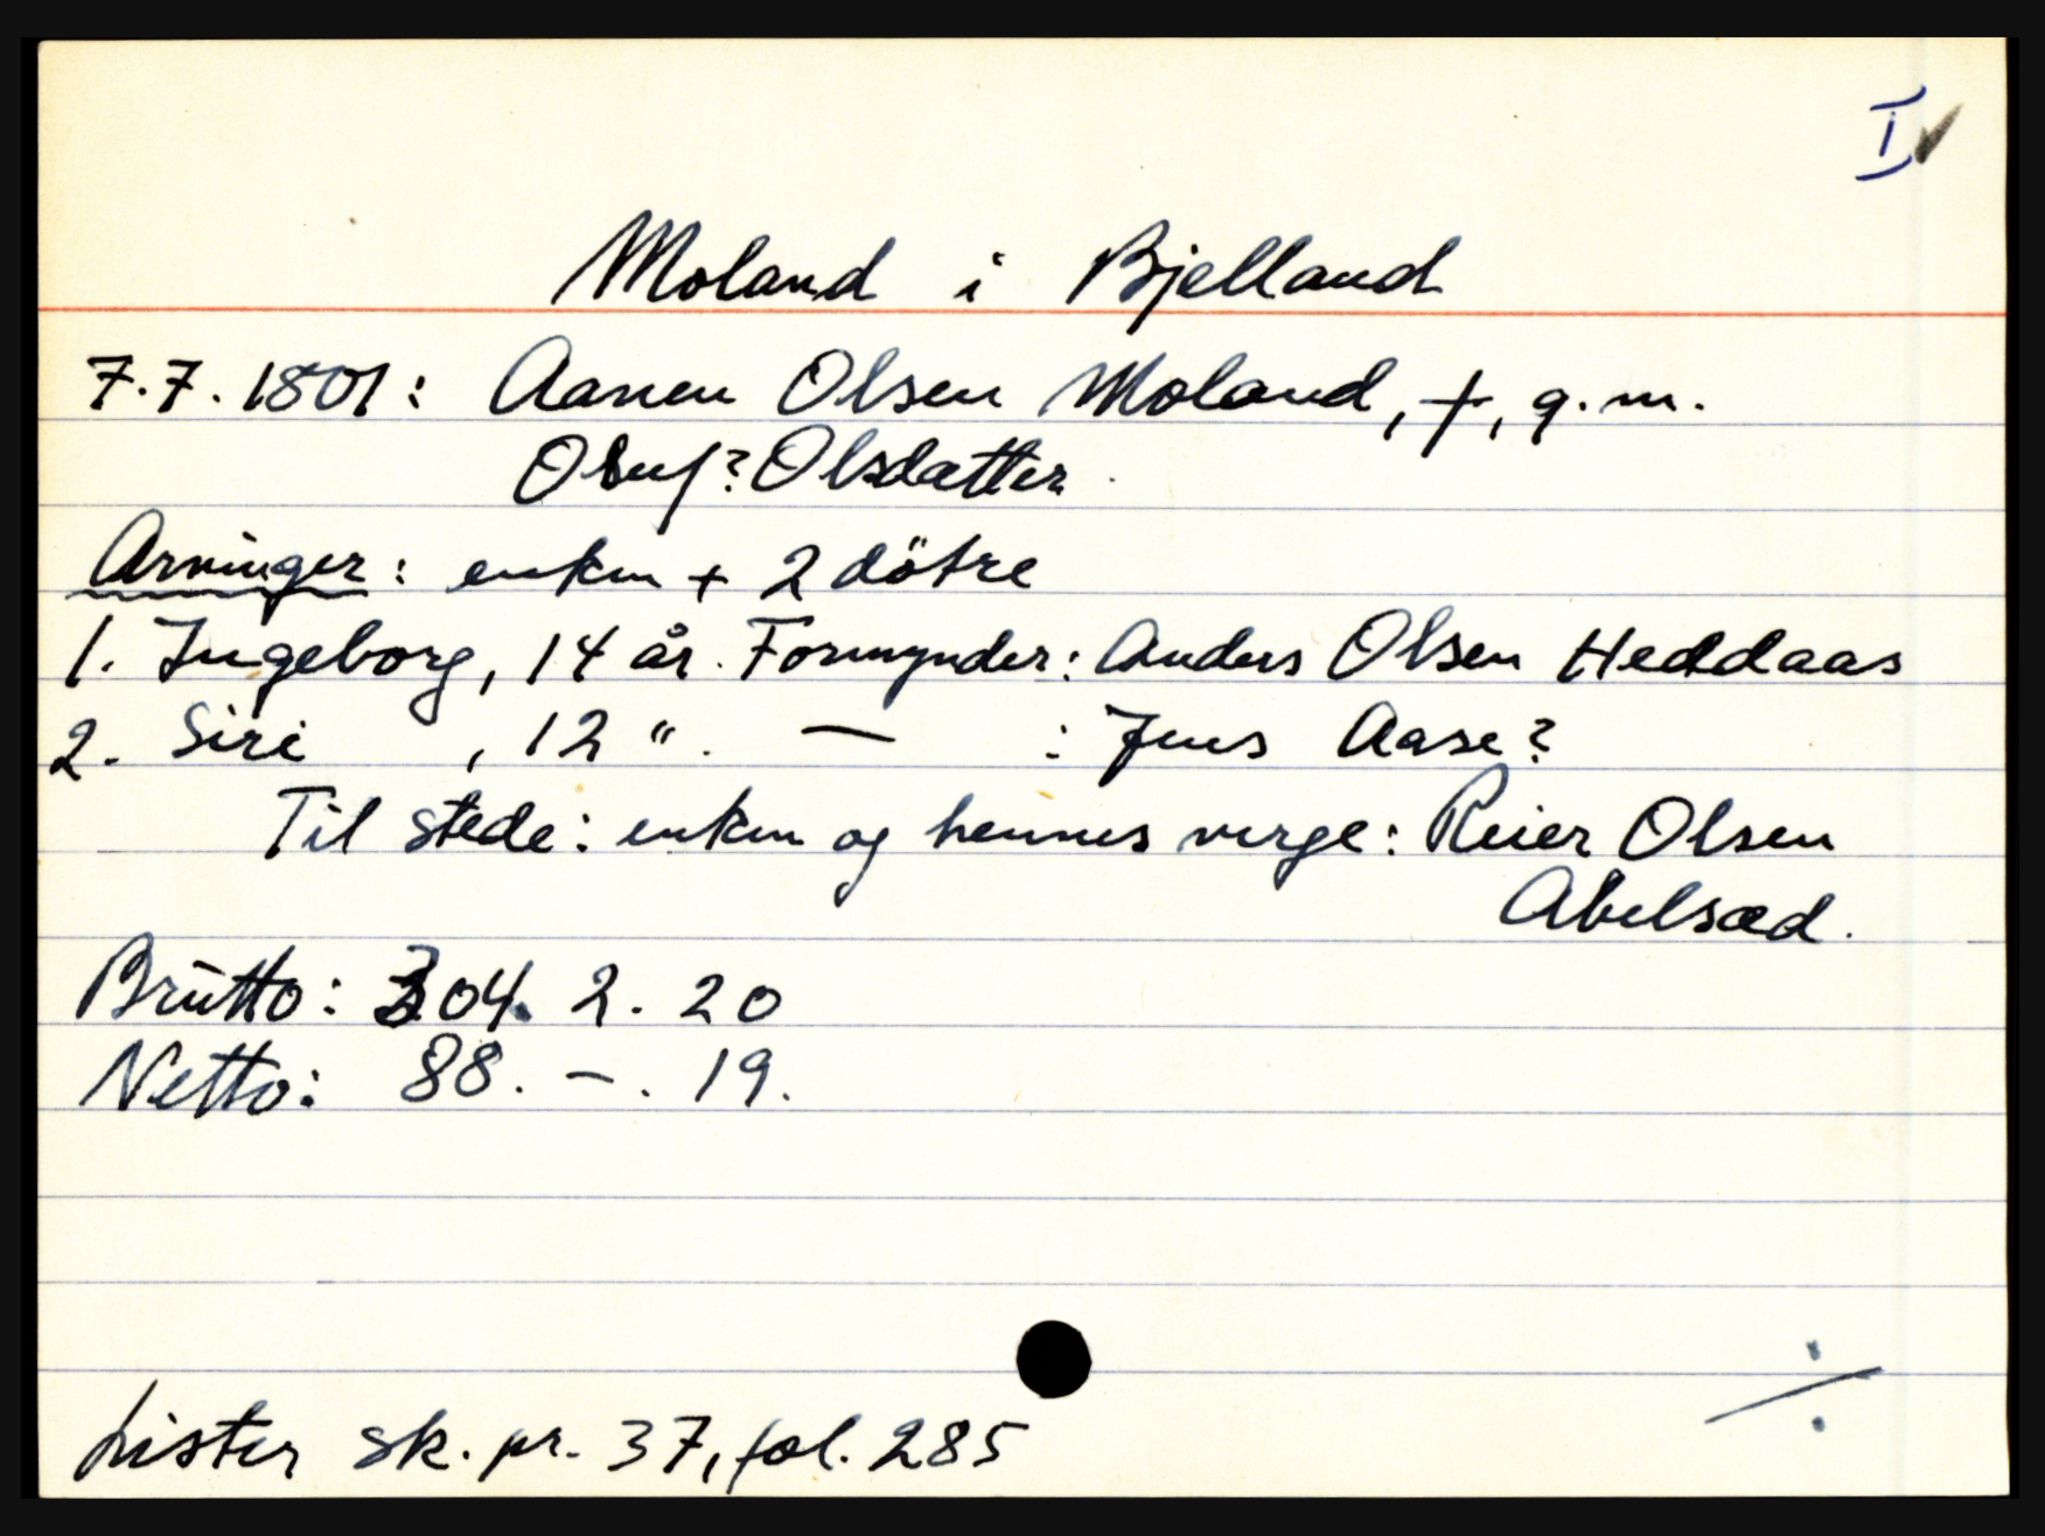 I ✓
Moland i Bjelland
7.7.1801: Aanen Olsen Moland, †, g.m.
Oluf? Olsdatter.
Arvinger: enken + 2 dötre
1. Ingeborg, 14 år. Formynder: Anders Olsen Heddaas
2. Siri , 12 ". — : Jens Aase?
Til stede: enken og hennes verge: Reier Olsen
Abelsæd.
Brutto: 304. 2. 20
Netto: 88. -. 19.
÷
Lister sk. pr. 37, fol. 285